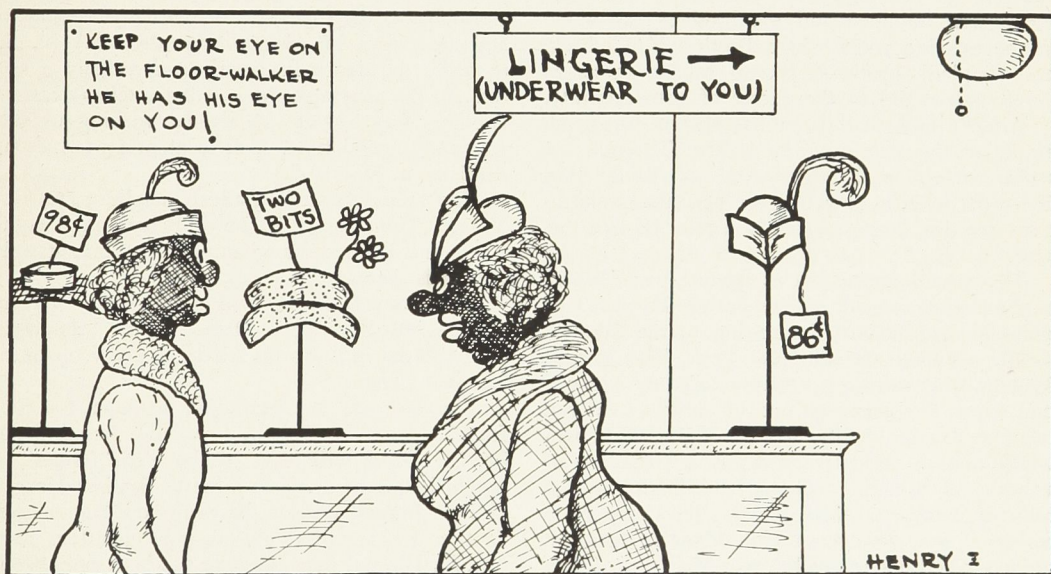 KEEP YOUR EYE ON
THE FLOOR-WALKER
HE HAS HIS EYE
ON YOU!
LINGERIE →
(UNDERWEAR TO YOU)
98¢
TWO
BITS
86¢
HENRY I